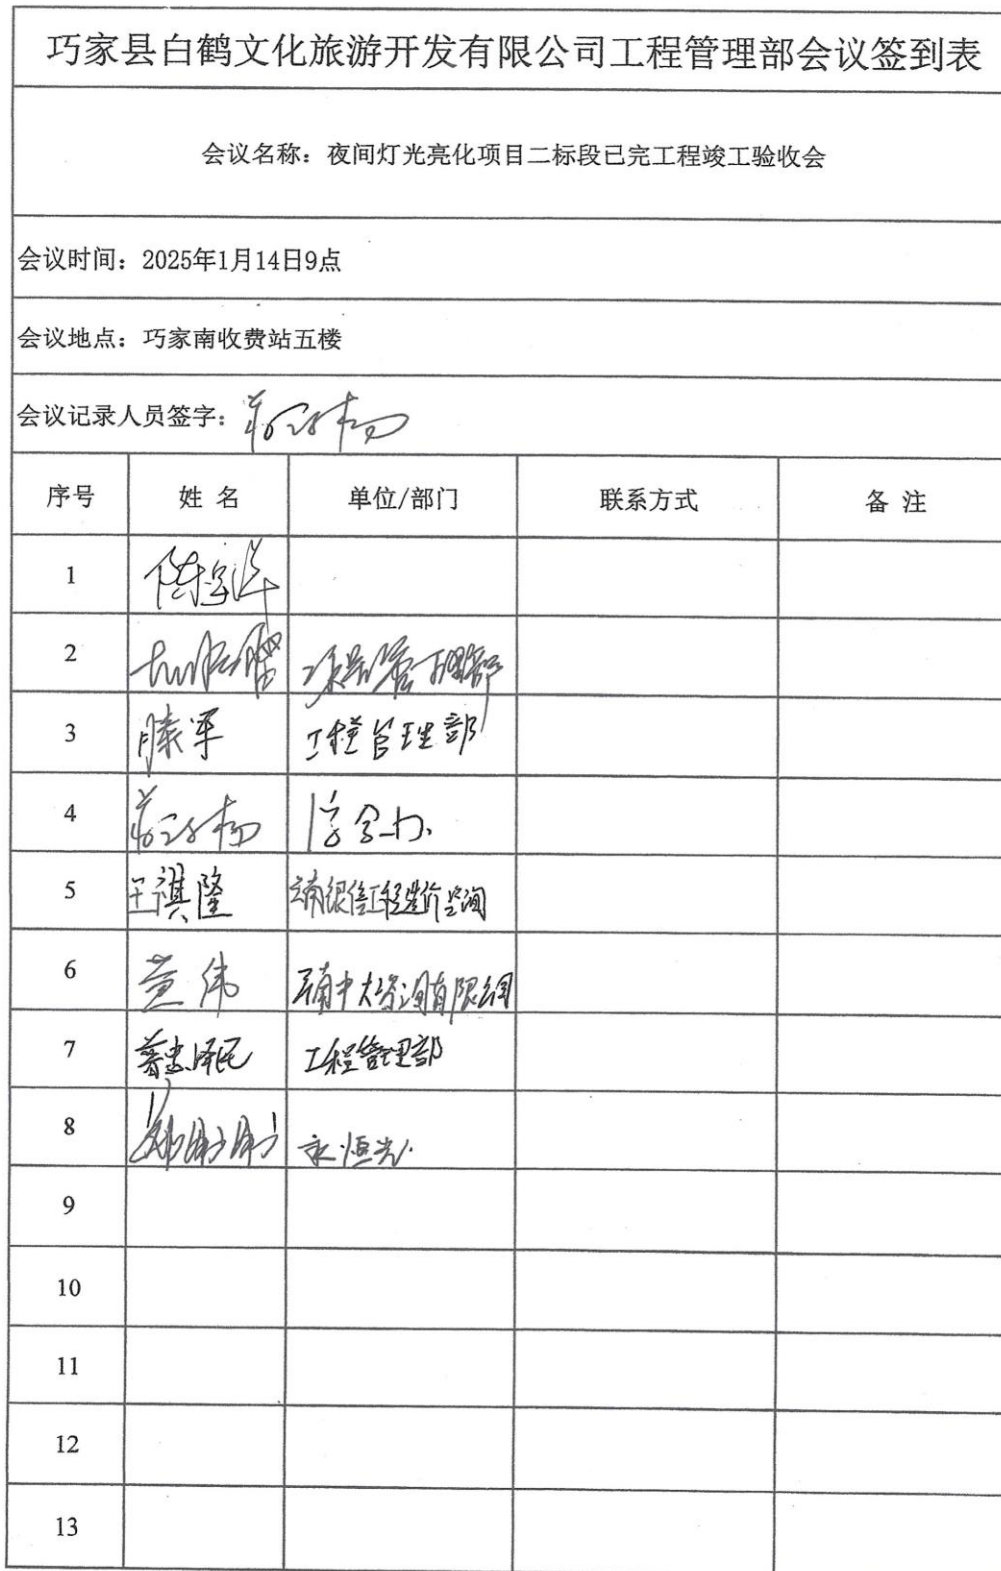 巧家县白鹤文化旅游开发有限公司工程管理部会议签到表
会议名称：夜间灯光亮化项目二标段已完工程竣工验收会
会议时间：2025年1月14日9点
会议地点：巧家南收费站五楼
会议记录人员签字：
序号 姓 名 单位/部门 联系方式 备 注
1
2
3 滕军 工程管理部
4
5 王祺隆 云南银信工程造价咨询
6 黄伟 云南中大咨询有限公司
7 工程管理部
8 永恒光
9
10
11
12
13